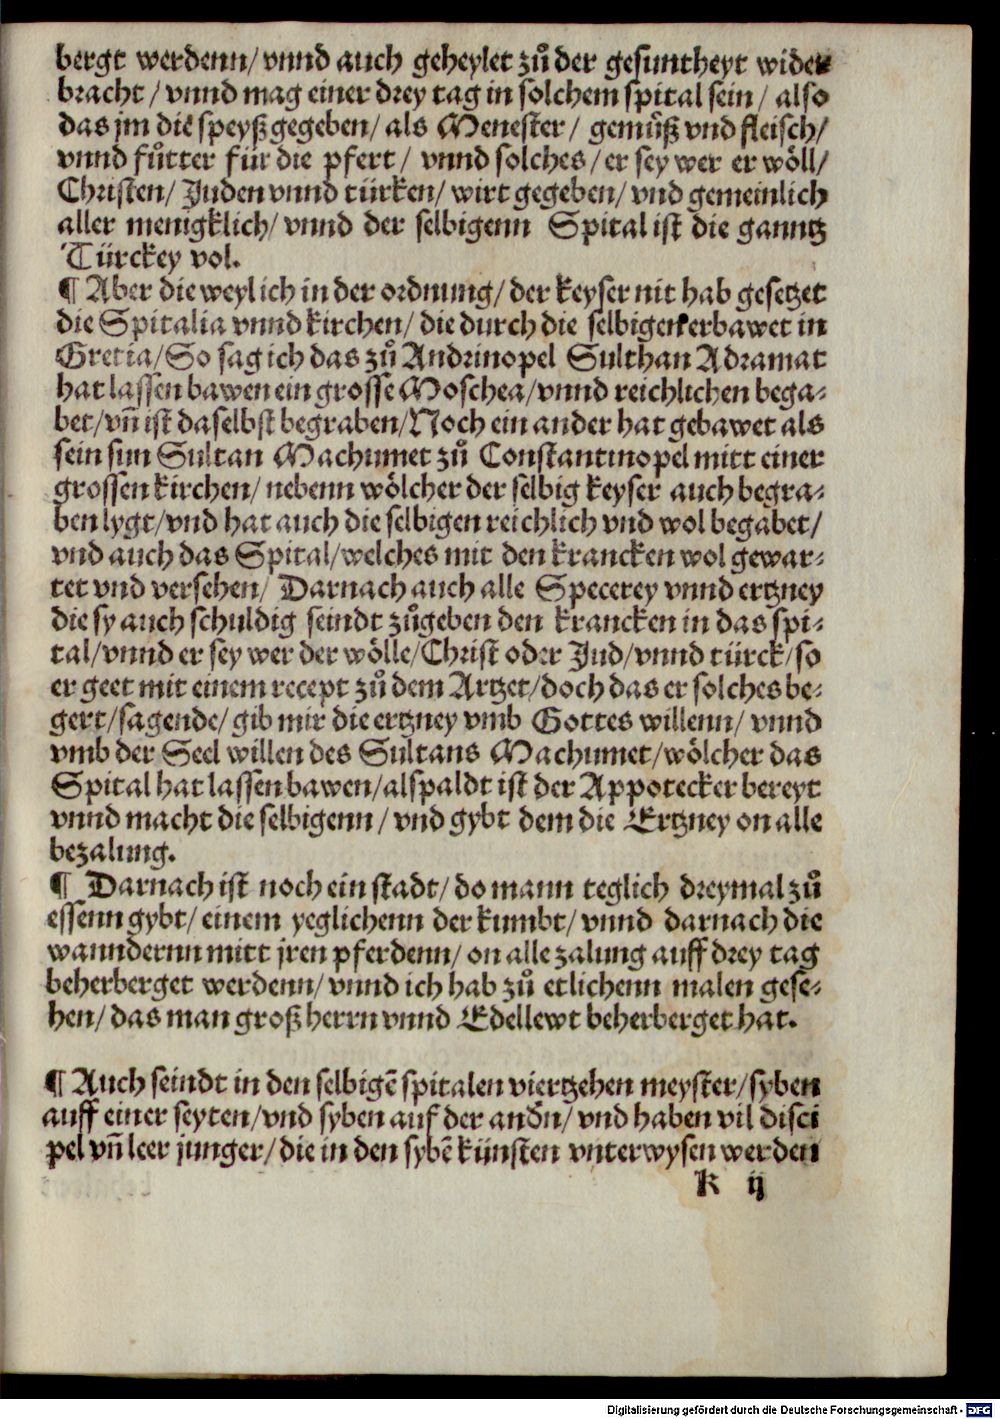 bergt werdenn/ vnnd auch geheylet zůder gesuntheyt wider
bracht/ vnnd mag einer drey tag in solchem spital sein/ also
das jm die speyß gegeben/ als Menester/ gemůß vnd fleisch/
vnnd fůtter für die pfert/ vnnd solches/ er sey wer er wöll/
Christen/ Juden vnnd türken/ wirt gegeben/ vnd gemeinlich
aller menigklich/ vnnd der selbigenn Spital ist die ganntz
Türckey vol.
¶ Aber die weyl ich in der ordnung/ der keyser nit hab gesetzet
die Spitalia vnnd kirchen/ die durch die selbigen erbawet in
Gretia/ So sag ich das zů Andrinopel Sulthan Adramat
hat lassen bawen ein grosse Moschea/ vnnd reichlichen bega⸗
bet/ vñ ist daselbst begraben/ Noch ein ander hat gebawet als
sein sun Sultan Machumet zů Constantinopel mitt einer
grossen kirchen/ nebenn wölcher der selbig keyser auch begra⸗
ben lygt/ vnd hat auch die selbigen reichlich vnd wol begabet/
vnd auch das Spital/ welches mit den krancken wol gewar⸗
tet vnd versehen/ Darnach auch alle Specerey vnnd ertzney
die sy auch schuldig seindt zůgeben den krancken in das spi⸗
tal/ vnnd er sey wer der wölle/ Christ oder Jud/ vnnd türck/ so
er geet mit einem recept zů dem Artzet/ doch das er solches be⸗
gert/ sagende/ gib mir die ertzney vmb Gottes willenn/ vnnd
vmb der Seel willen des Sultans Machumet/ wölcher das
Spital hat lassen bawen/ alspaldt ist der Appotecker bereyt
vnnd macht die selbigenn/ vnd gybt dem die Ertzney on alle
bezalung.
¶ Darnach ist noch ein stadt/ do mann teglich dreymal zů
essenn gybt/ einem yeglichenn der kumbt/ vnnd darnach die
wanndernn mitt jren pferdenn/ on alle zalung auff drey tag
beherberget werdenn/ vnnd ich hab zů etlichenn malen gese⸗
hen/ das man groß herrn vnnd Edellewt beherberget hat.
¶ Auch seindt in den selbigē spitalen viertzehen meyster/ syben
auff einer seyten/ vnd syben auf der andn̄/ vnd haben vil disci
pel vñ leer junger/ die in den sybē künsten vnterwysen werden
K ij
Digitalisierung gefördert durch die Deutsche Forschungsgemeinschaft - DFG